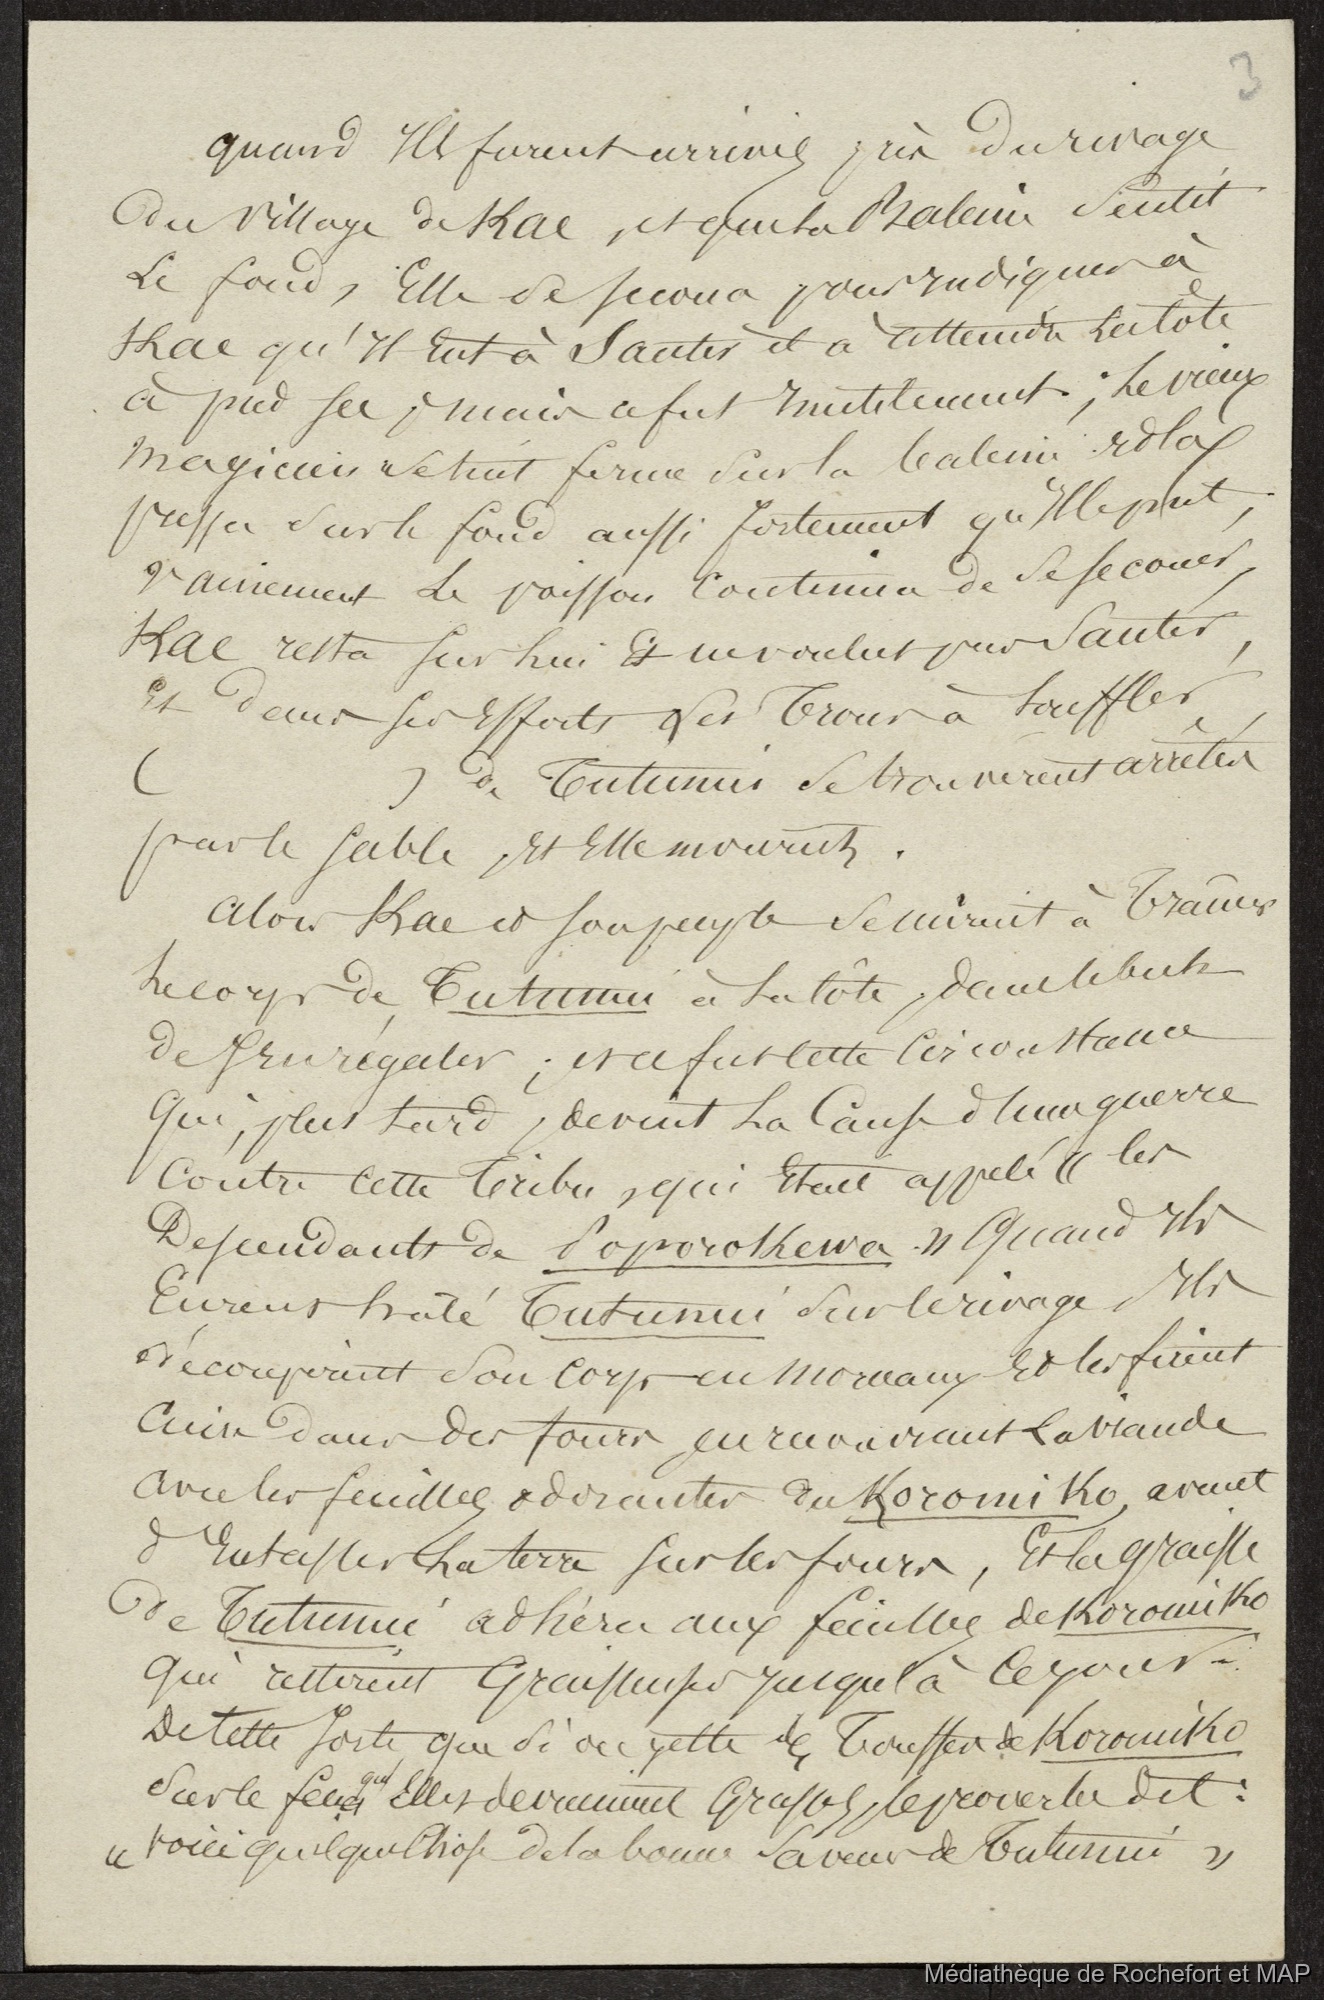 3
quand Ils furent arrivés près du rivage
du village de Kae, et que la Baleine sentit
Le fond, Elle se secoua pour Indiquer à
Kae qu'Il Eut à Sauter et à atteindre La côte
à pied sec ; mais ce fut Inutilement ; Le vieux
magicien se tint ferme sur la baleine et la
pressa sur le fond aussi fortement qu'Il le put ;
vainement Le poisson continua de se secouer,
Kae resta sur Lui Et ne voulut pas Sauter,
Et dans ses Efforts Les Trous à Souffler
( ) de Tutunui se trouvèrent arrêtés
par le sable, Et Elle mourut.
alors Kae et son peuple se mirent à Traîner
Le corps de Tutunui à La côte, dans le but
de s'En régaler ; et ce fut cette Circonstance
Qui, plus tard, devint La Cause d'une guerre
contre cette Tribu, qui Etait appelé « les
Descendants de Poporokewa » Quand Ils
Eurent halé Tutunui sur le rivage Ils
découpèrent Son Corps en Morceaux Et les firent
Cuire dans des fours en recouvrant La viande
avec les feuilles odorantes du Koromiko, avant
d'Entasser La terre sur les fours, Et la graisse
de Tutunui adhéra aux feuilles de Koromiko
Qui restèrent Graisseuses jusqu'à ce jour.
De cette sorte que si on jette des Touffes de Koromiko
sur le feu et qu' Elles deviennent Grasses, le proverbe dit :
« voici quelque Chose de la bonne Saveur de Tutunui »
Médiathèque de Rochefort et MAP